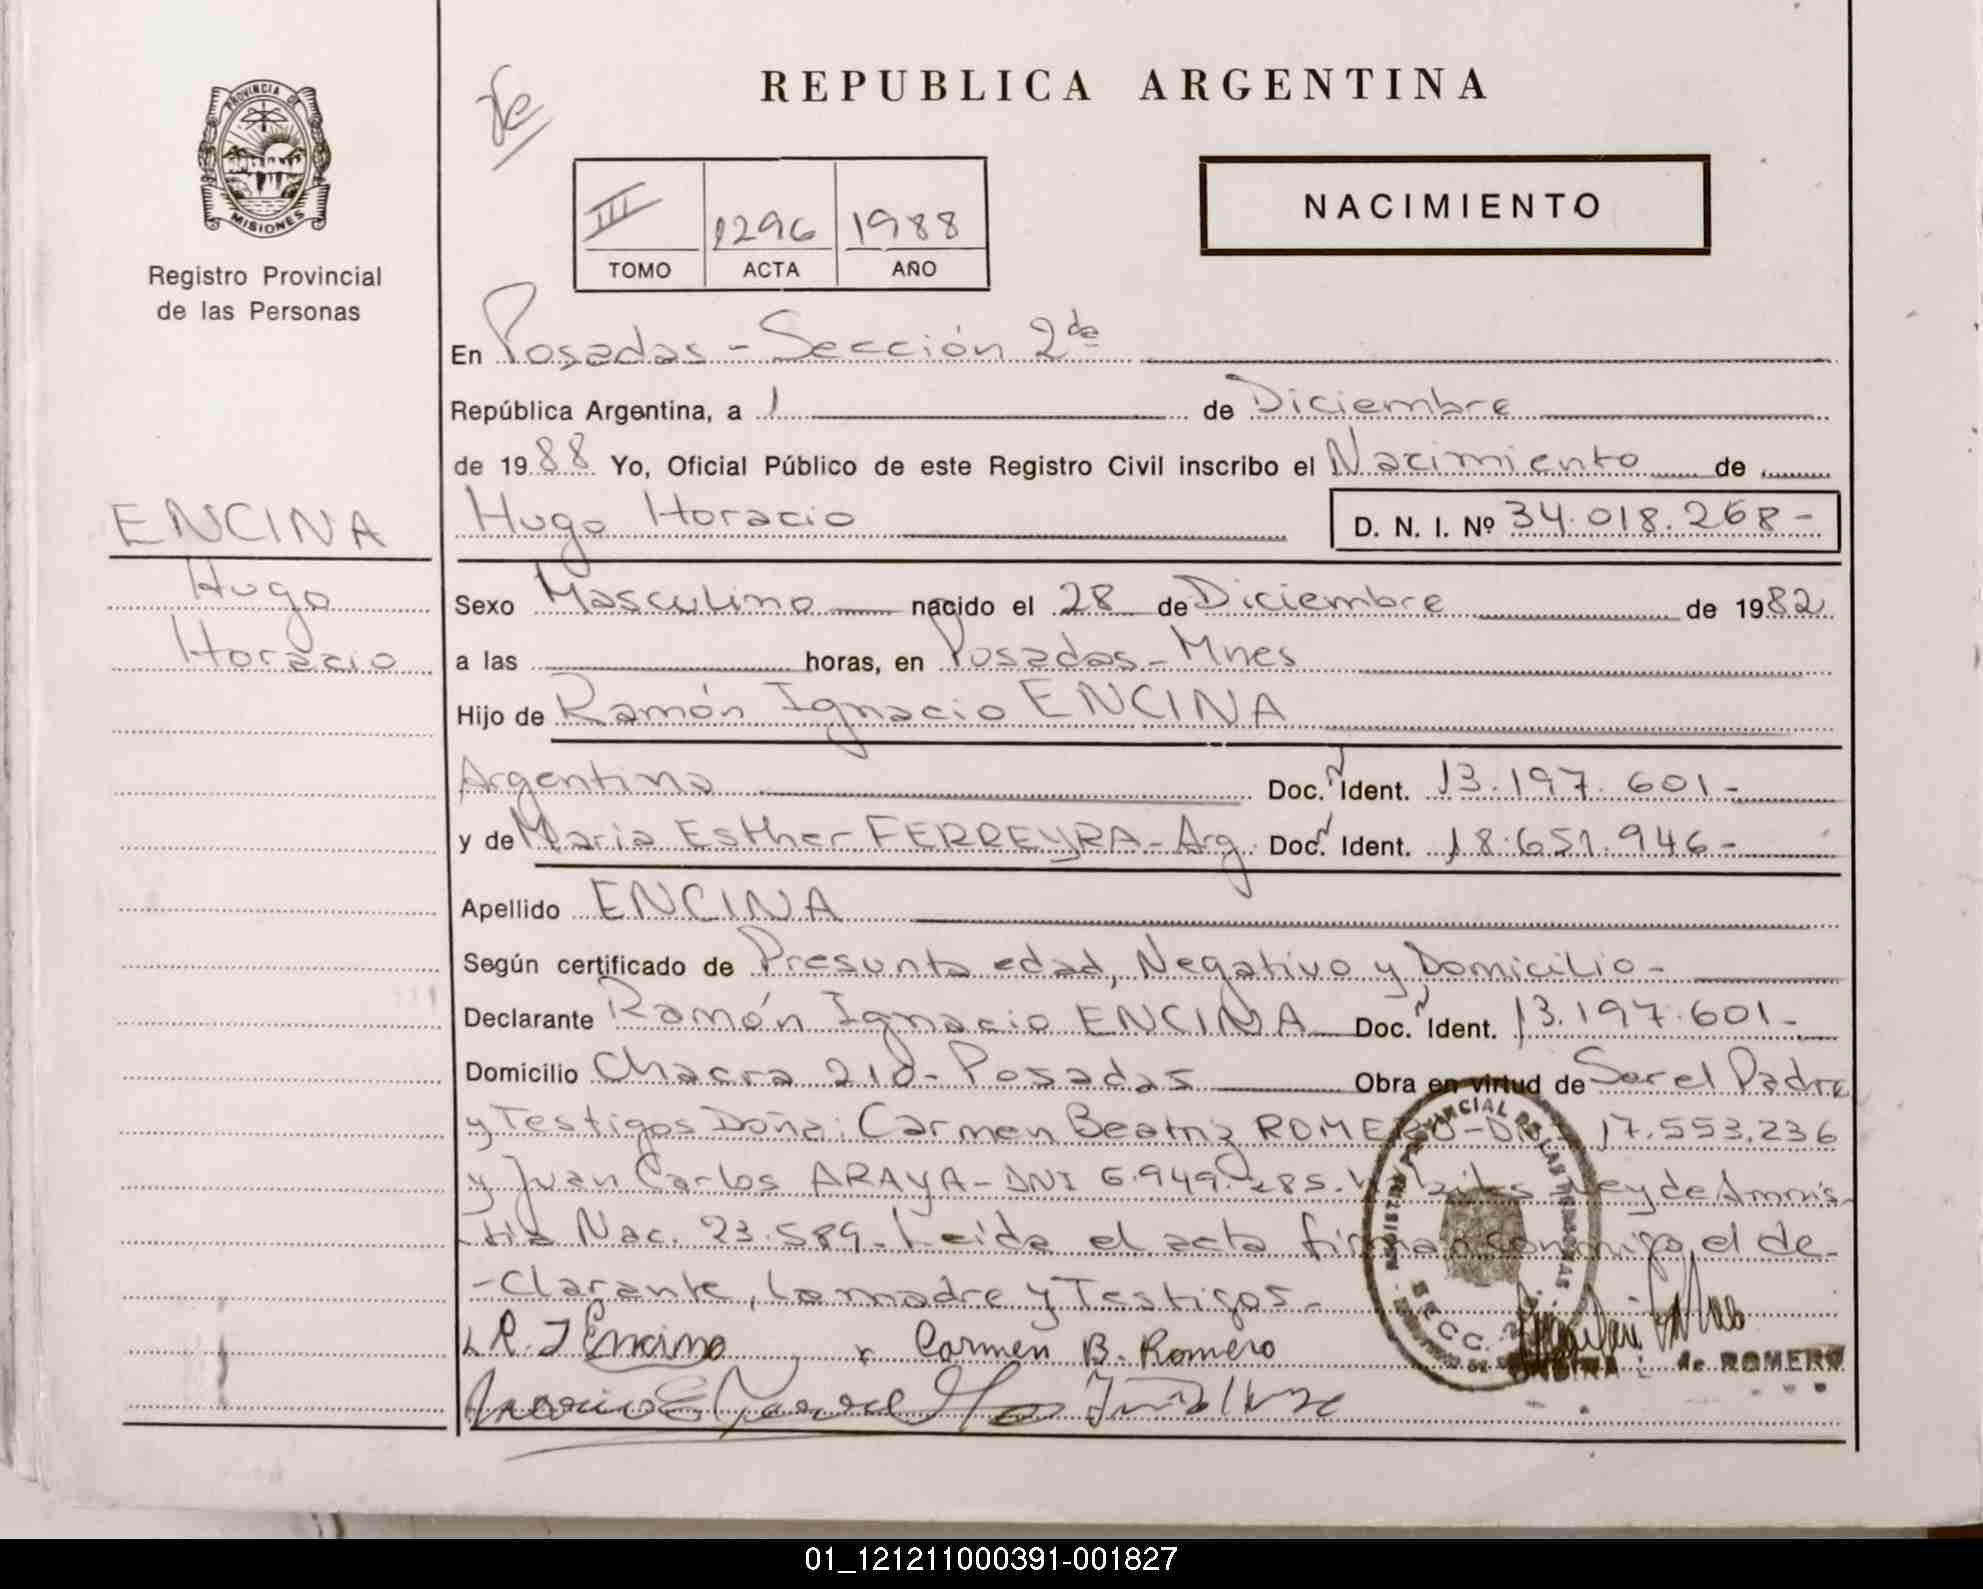 PROVINCIA DE
MISIONES
Registro Provincial
de las Personas
REPUBLICA ARGENTINA
NACIMIENTO
III 1296 1988
TOMO ACTA AÑO
En Posadas - Sección 2da
República Argentina, a 1 de Diciembre
de 1988 Yo, Oficial Público de este Registro Civil inscribo el Nacimiento de
ENCINA
Hugo
Horacio
Hugo Horacio D. N. I. Nº 34.018.268-
Sexo Masculino nacido el 28 de Diciembre de 1982
a las horas, en Posadas - Mnes
Hijo de Ramón Ignacio ENCINA
Argentina Doc. Ident. 13.197.601-
y de María Esther FERREYRA - Arg. Doc. Ident. 18.651.946-
Apellido ENCINA
Según certificado de Presunta edad, Negativo y Domicilio-
Declarante Ramón Ignacio ENCINA Doc. Ident. 13.197.601-
Domicilio Chacra 210- Posadas Obra en virtud de Ser el Padre
y Testigos Doña: Carmen Beatriz ROMERO - DNI 17.553.236
y Juan Carlos ARAYA - DNI 6.949.285. Ley de Amnis
tia Nac. 23.589. Leida el acta firman conmigo, el de-
-clarante, la madre y Testigos-
R. I Encina Carmen B. Romero
de ROMERO
01_121211000391-001827